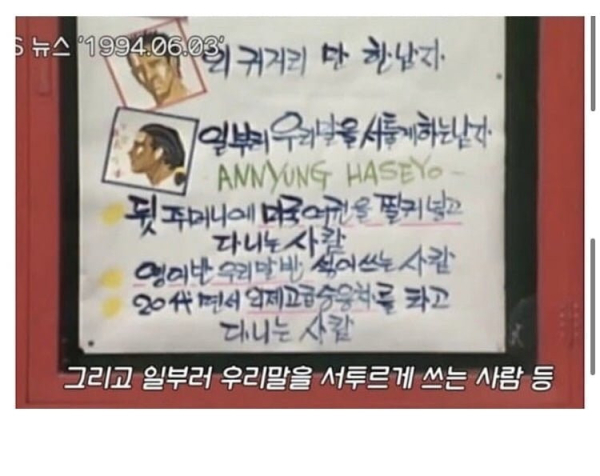 S 뉴스 '1994.06.03'
귀거리 만 한 남자.
일부러 우리말을 서툴게 하는 남자.
ANNYUNG HASEYO ~
뒷 주머니에 미국여권을 찔러 넣고
다니는 사람
영어반 우리말반 섞어쓰는 사람
20代 면서 외제고급승용차를 타고
다니는 사람
그리고 일부러 우리말을 서투르게 쓰는 사람 등